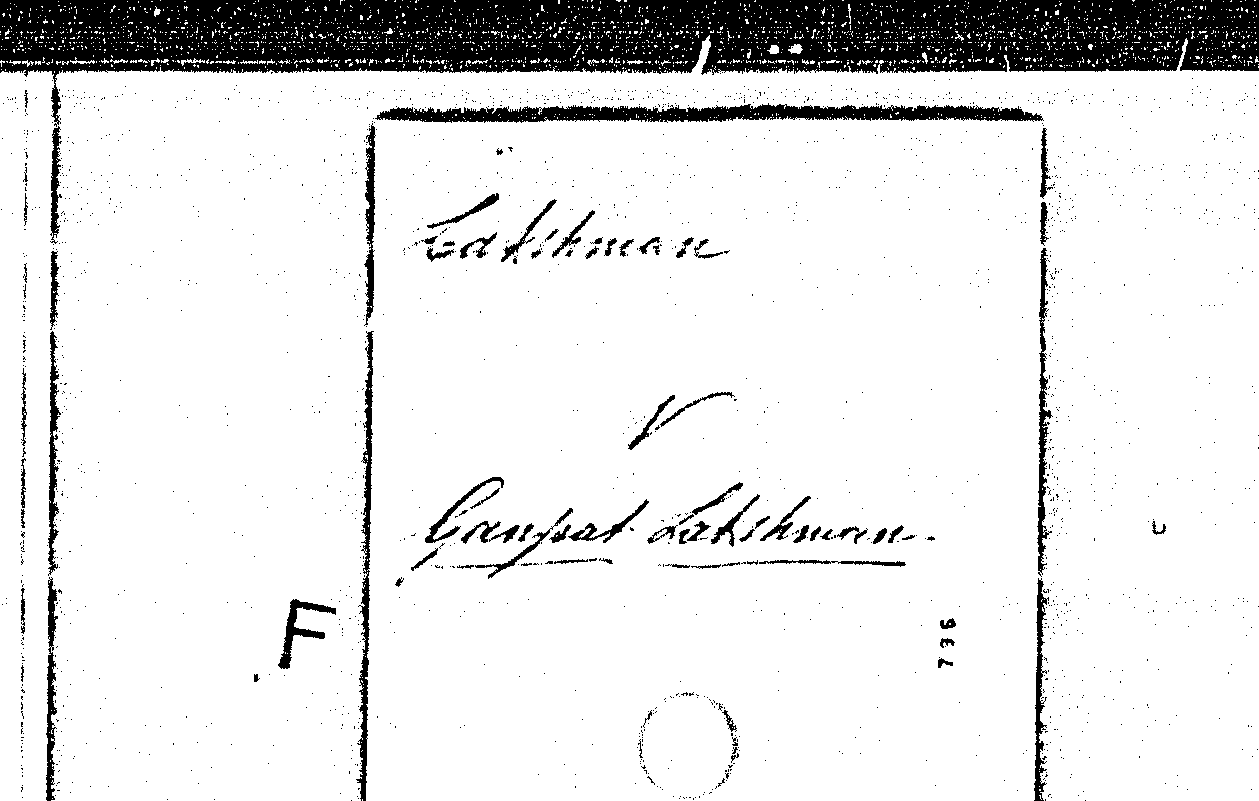 Lakshman
V
Ganpat Lakshman.
F
736